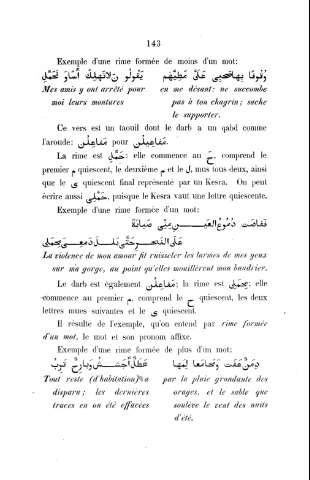 143
Exemple d'une rime formée de moins d'un mot:
وُقُوفًا بِهَا صَحْبِي عَلَىَّ مَطِيَّهُم يَقُولُونَ لَا تَهْلِكْ أَسًى وَتَحَمَّلِ
Mes amis y ont arrêté pour en me désant: ne succombe
moi leurs montures pas à ton chagrin; sache
le supporter.
Ce vers est un taouil dont le darb a un qabd comme
l'aroude: مَفَاعِلُن pour مَفَاعِيلُن.
La rime est حَمَّلِي: elle commence au ح, comprend le
premier م quiescent, le deuxième م et le ل, mus tous deux, ainsi
que le ي quiescent final représenté par un Kesra. On peut
écrire aussi حَمَّلِي, puisque le Kesra vaut une lettre quiescente.
Exemple d'une rime formée d'un mot:
فَفَاضَت دُمُوعُ العَيْنِ مِنِّي صَبَابَةً
عَلَى النَّحْرِ حَتَّى بَلَّ دَمْعِي مِحْمَلِي
La violence de mon amour fit ruisseler les larmes de mes yeux
sur ma gorge, au point qu'elles mouillèrent mon baudrier.
Le darb est également مَفَاعِلُن; la rime est مِحْمَلِي; elle
commence au premier م, comprend le ح quiescent, les deux
lettres mues suivantes et le ي quiescent.
Il résulte de l'exemple, qu'on entend par rime formée
d'un mot, le mot et son pronom affixe.
Exemple d'une rime formée de plus d'un mot:
دِمَنٌ عَفَت وَمَحَا مَعَالِمَهَا هَطِلٌ أَجَشُّ وَبَارِحٌ تَرِبُ
Tout reste (d'habitation) a par la pluie grondante des
disparu; les dernières orages, et le sable que
traces en on été effacées soulève le vent des nuits
d'été.